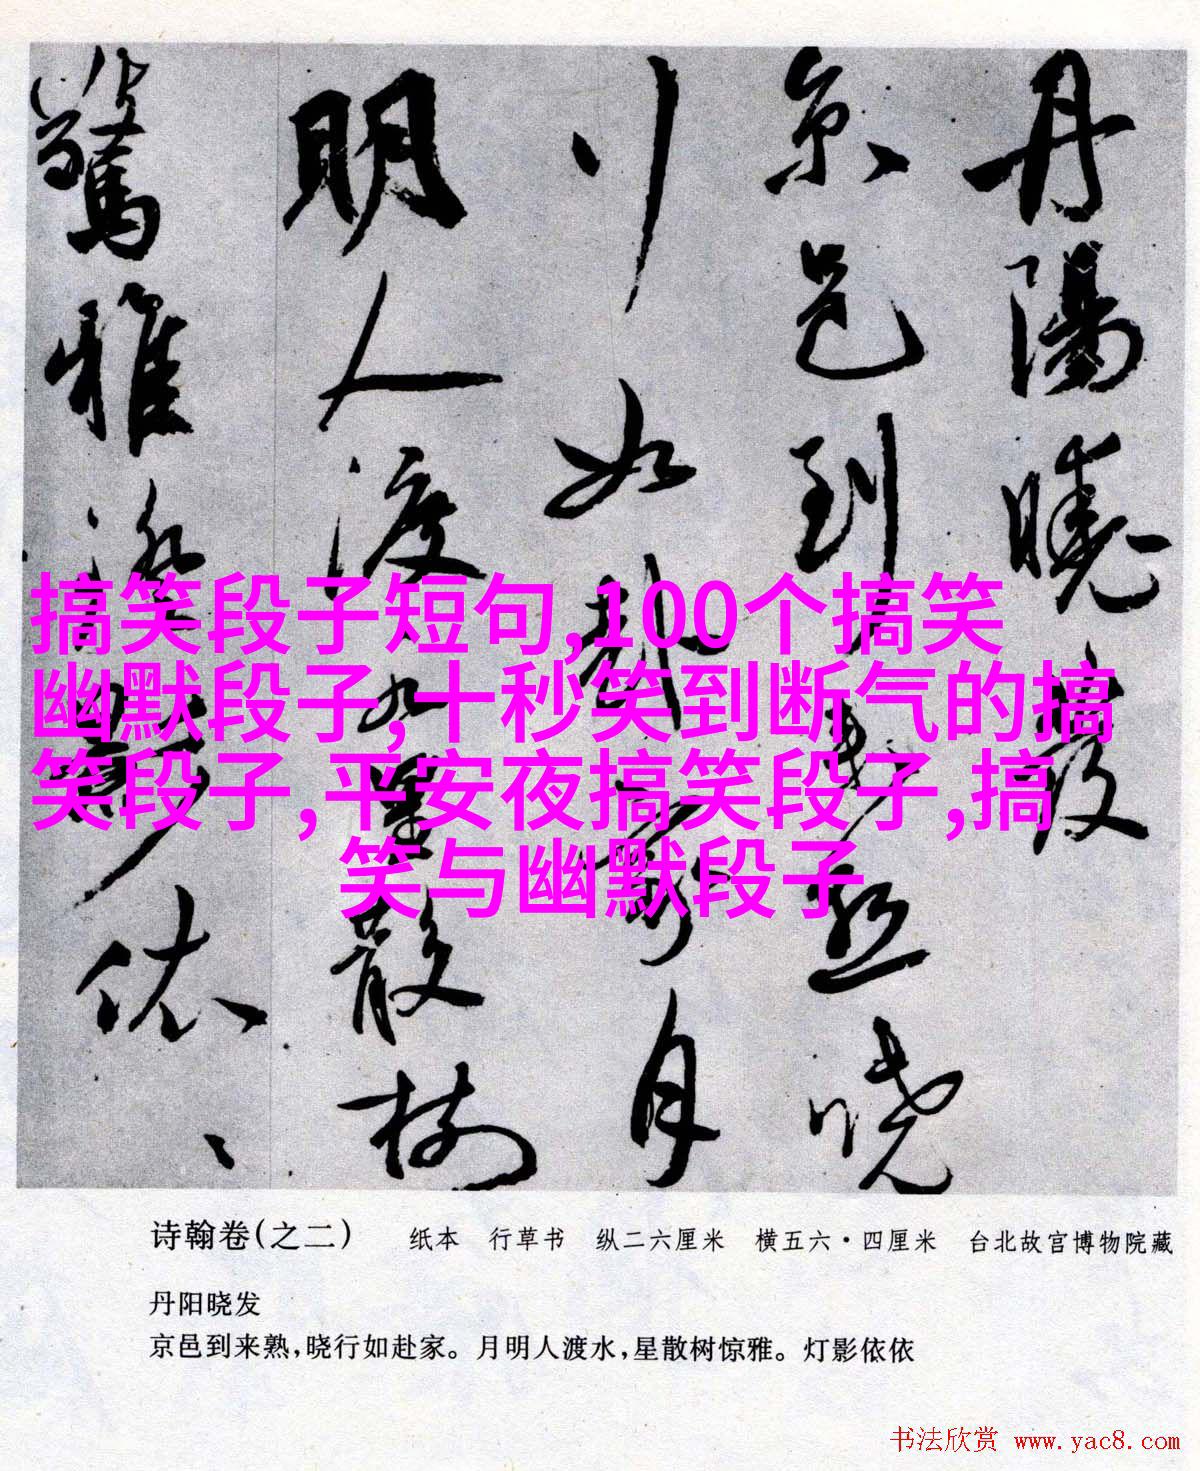 丹陽曉發
京邑到来熟曉
行如赴家月
明人渡水星散樹
驚雅燈影依、
搞笑段子短句,100个搞笑
幽默段子,十秒笑到断气的搞
笑段子,平安夜搞笑段子,搞
笑与幽默段子
诗翰卷(之二) 纸本 行草书 纵二六厘米 横五六·四厘米 台北故宫博物院藏
丹阳晓发
京邑到来熟,晓行如赴家。月明人渡水,星散树惊雅。灯影依依
书法欣赏 www.yac8.com